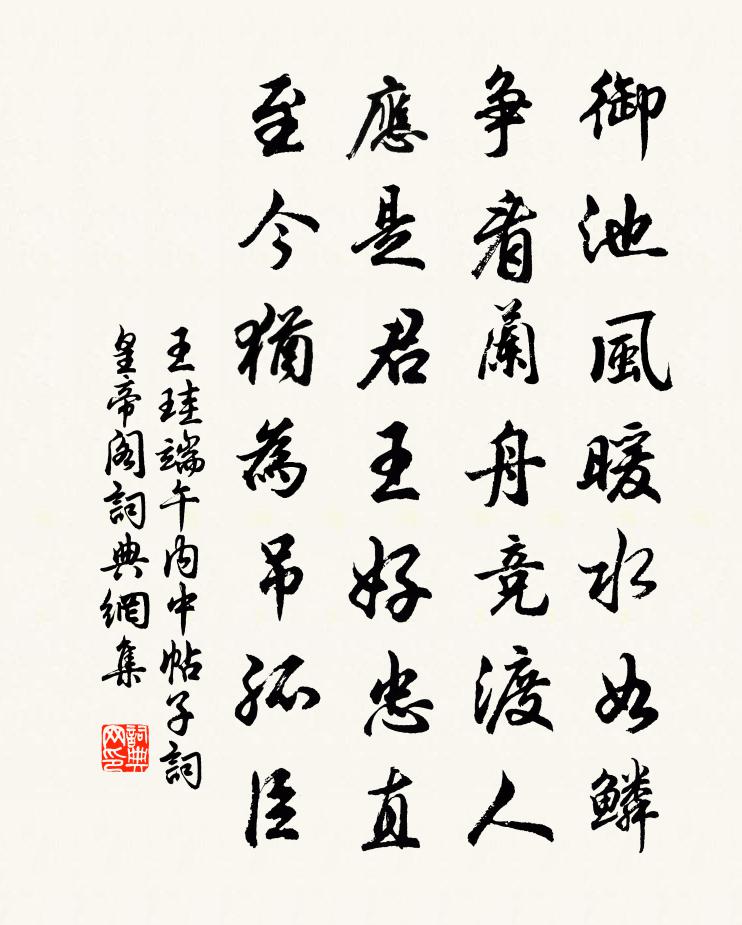 御池風暖水如鱗
争看蘭舟競渡人
應是君王好忠直
至今猶為吊孤臣
王珪端午内中帖子詞
皇帝阁詞典網集
詞典网印